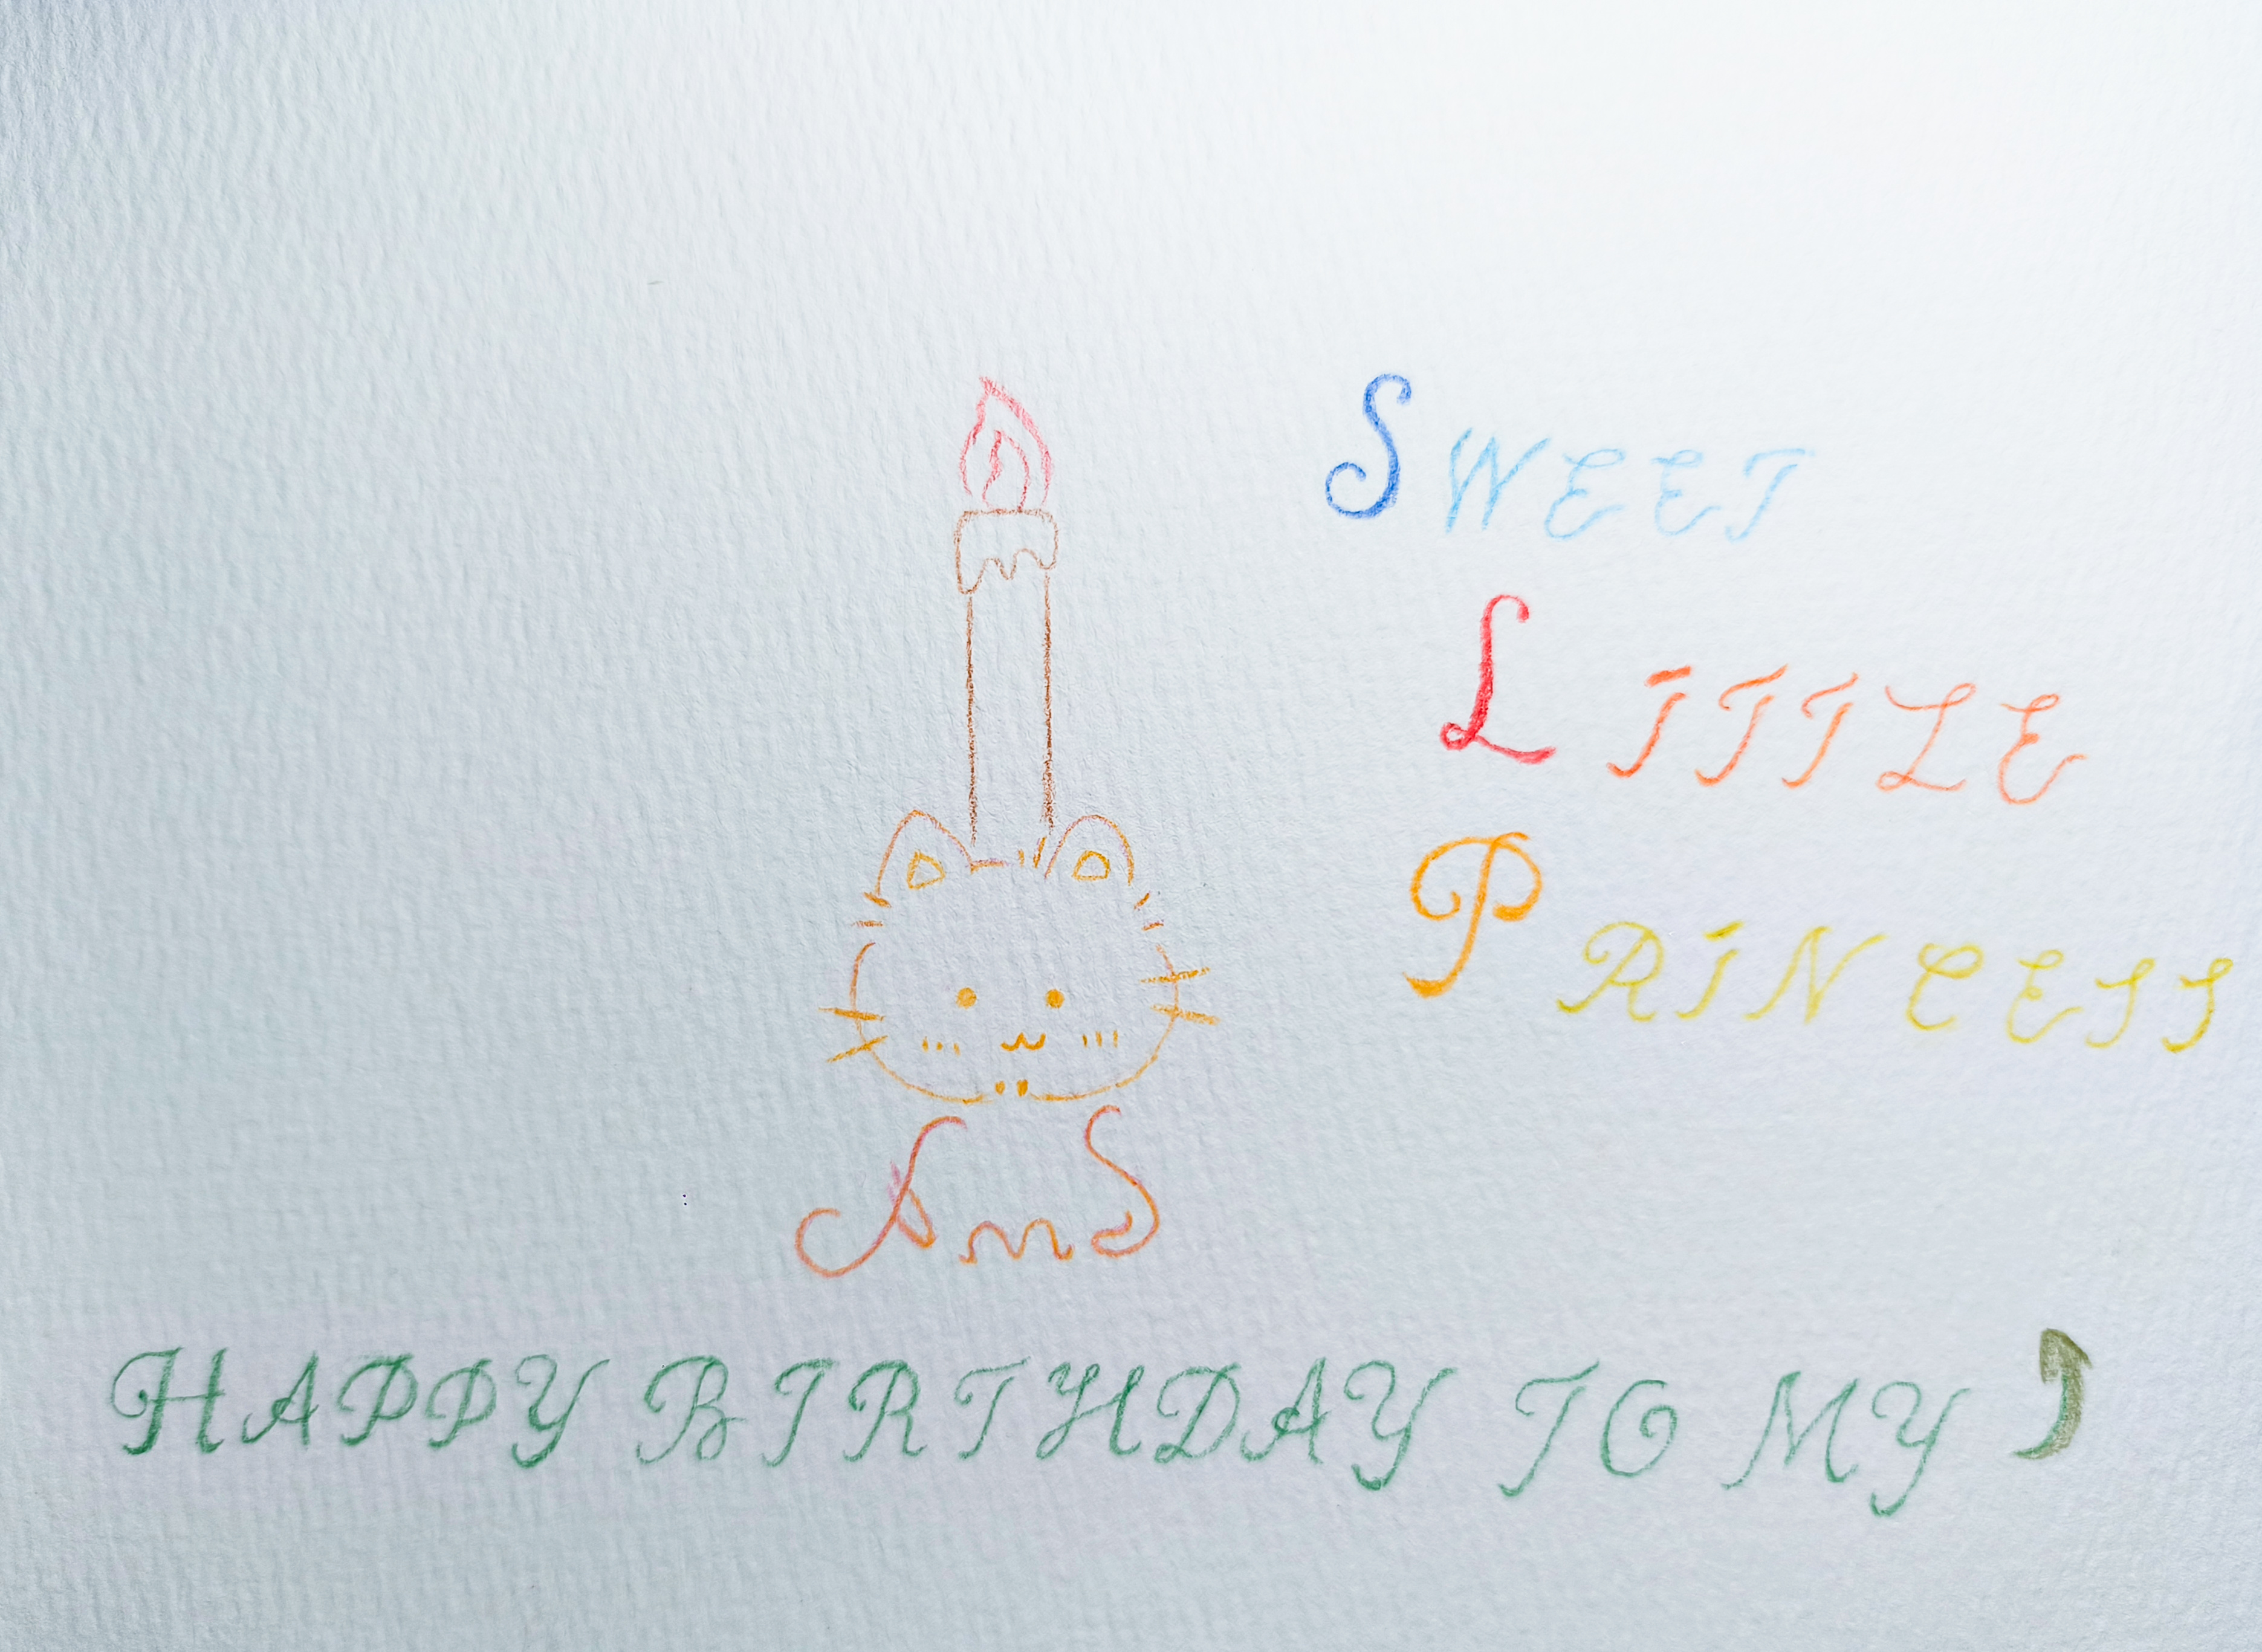 SWEET
LITTLE
PRINCESS
AmS
HAPPY BIRTHDAY TO MY